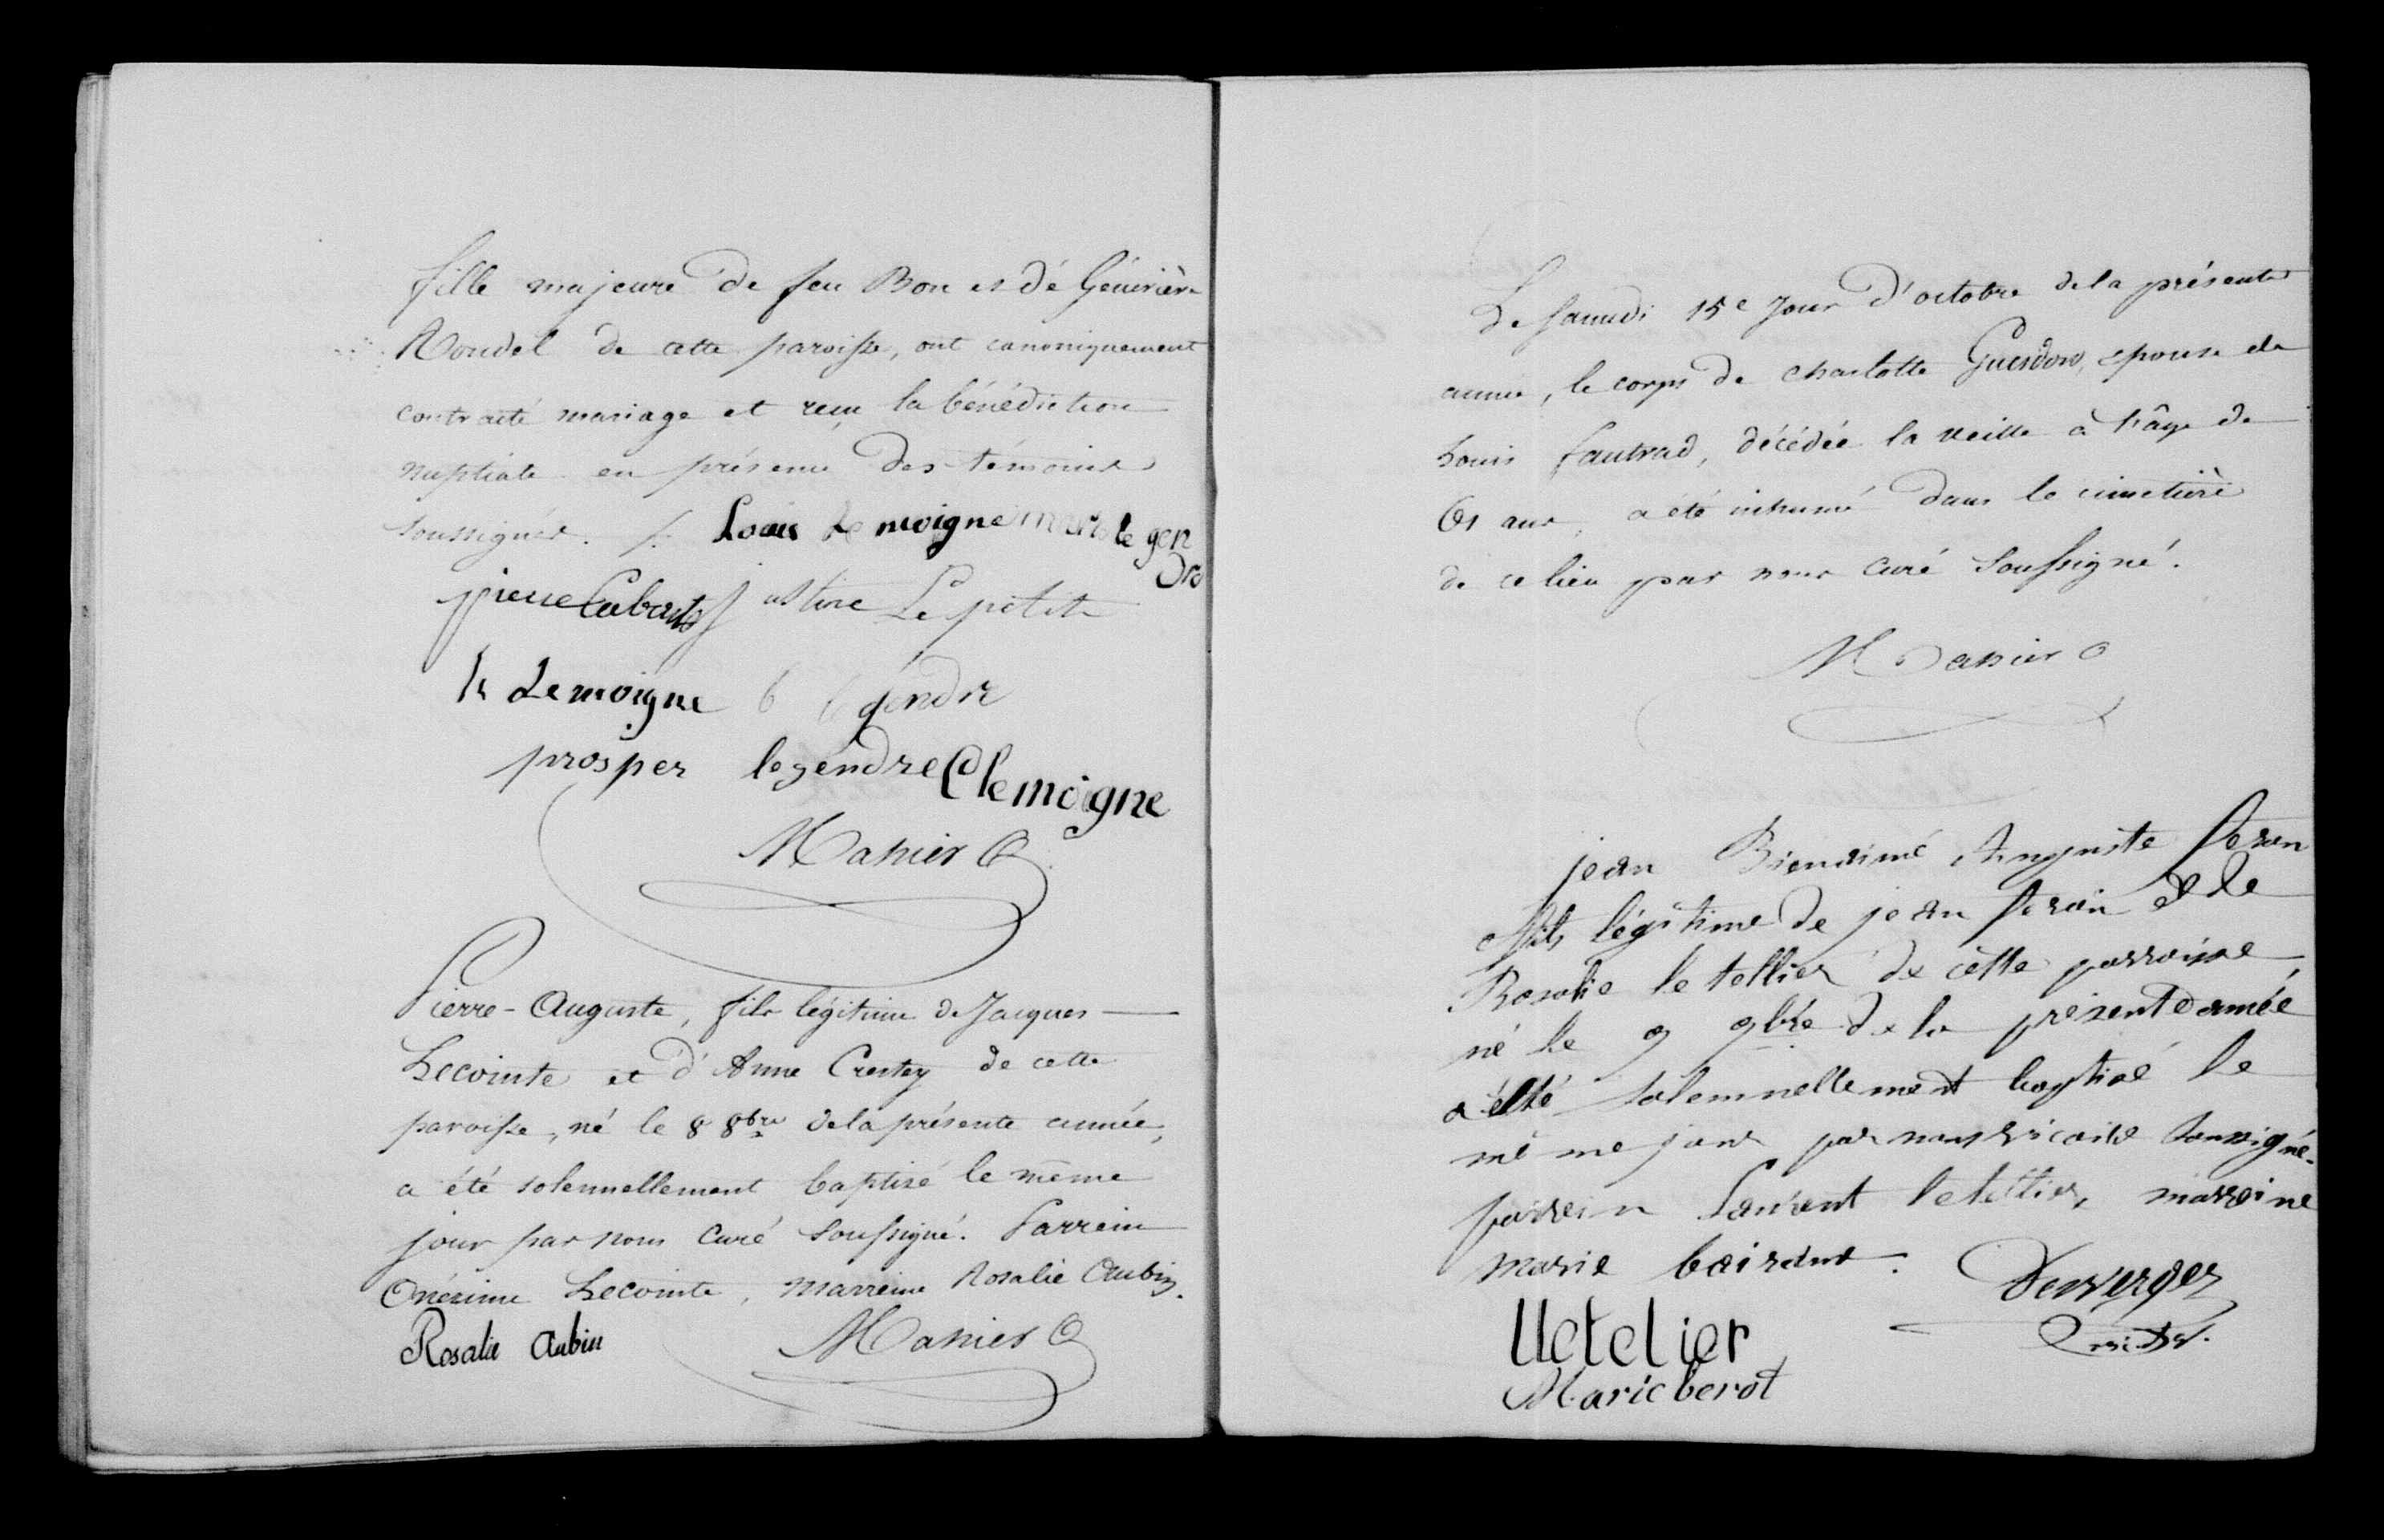 fille majeure de feu Bon et dé Géneviève
Rondel de cette paroisse, ont canoniquement
contracté mariage et reçu la bénédiction
nuptiale en présence des témoins
soussignés. /. Louis Le moigne le gen
dre
pierre Labarts justine Le petit
Lemoigne gendre
prosper legendre C lemoigne
Mahier
Pierre-Auguste, fils légitime de Jacques
Lecointe et d'Anne Crestey de cette
paroisse, né le 8 8bre de la présente année,
a été solennellement baptisé le même
jour par nous Curé soussigné. Parrein
Onézime Lecointe, marreine Rosalie Aubin.
Rosalie Aubin Mahier
Le Samedi 15e jour d'octobre de la présente
année, le corps de charlotte Guesdon, epouse de
Louis fautrad, décédée la veille à l'âge de
61 ans, a été inhumé dans le cimetière
de ce lieu par nous curé soussigné.
Mahier
jean Bienaimé Auguste feron
fils légitime de jean feron et de
Rosalie le tellier de cette parroisse,
né le 9 9bre de la présente année
a été solemnellement baptisé le
même jour par nous vicaire soussigné.
parrein Laurent letellier, marreine
marie bairdnt. Desverger
l letelier vic.
Marie berot